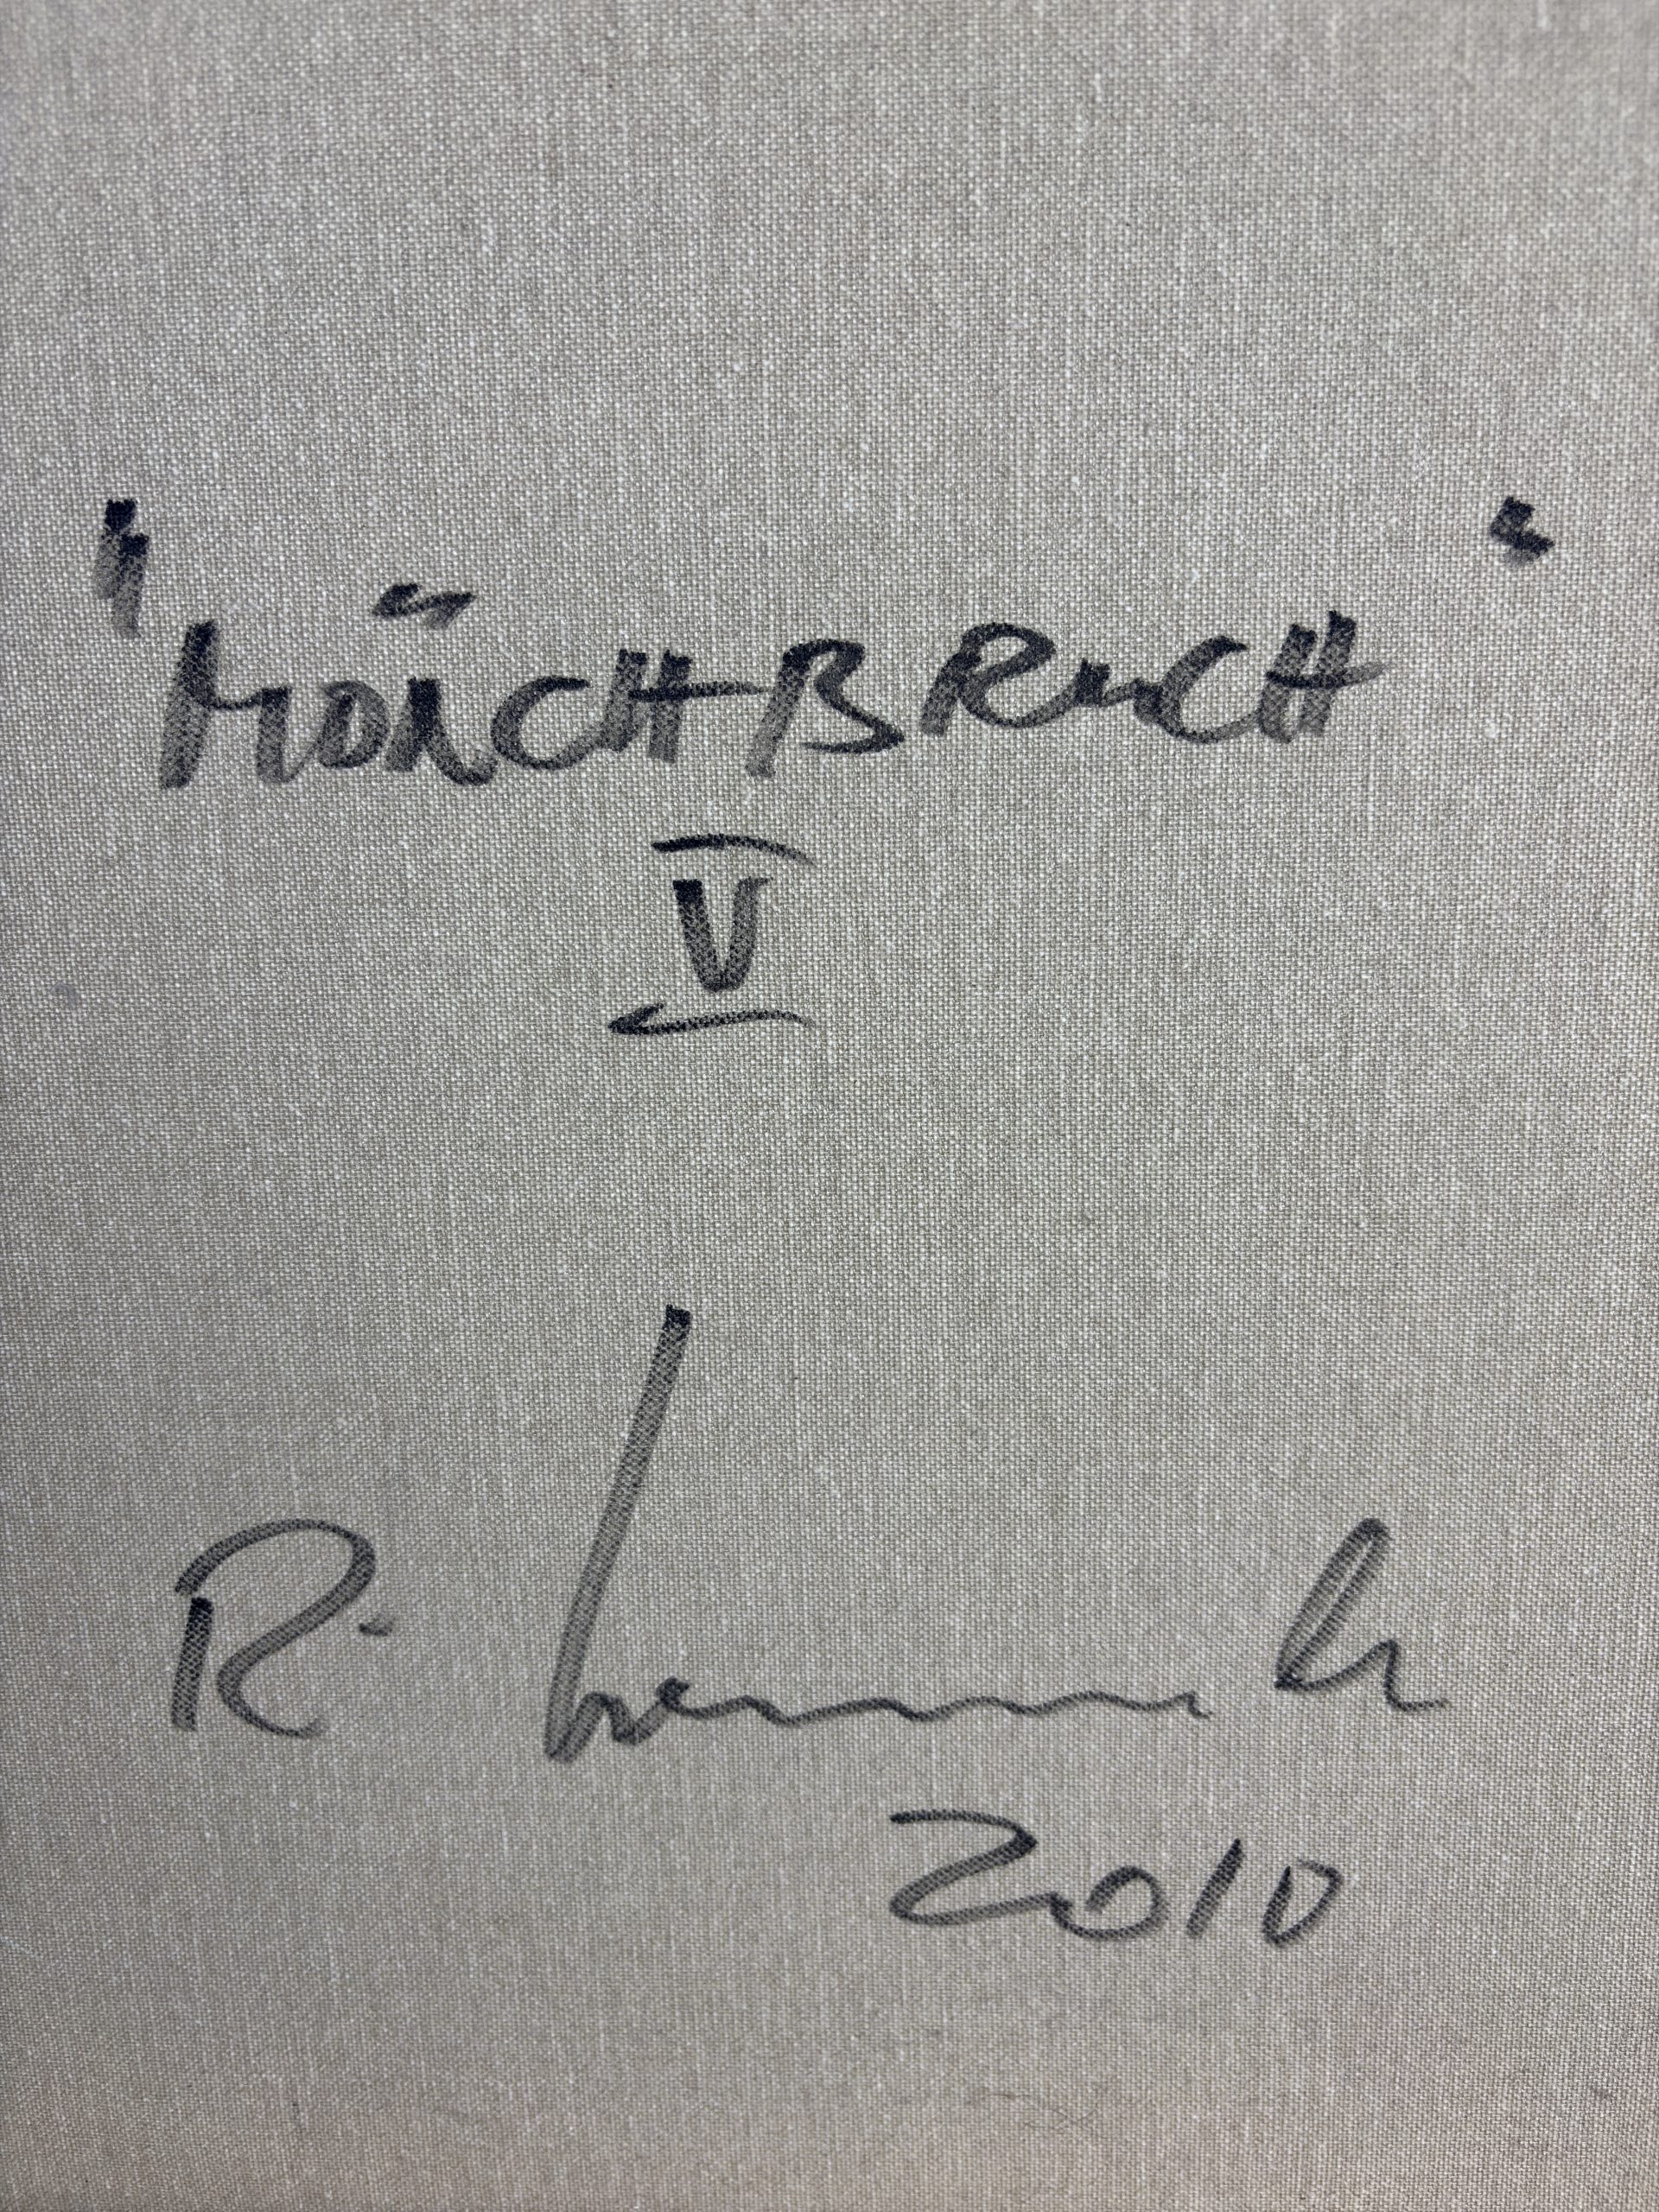 "MÖNCHBRUCH"
V
R.
2010